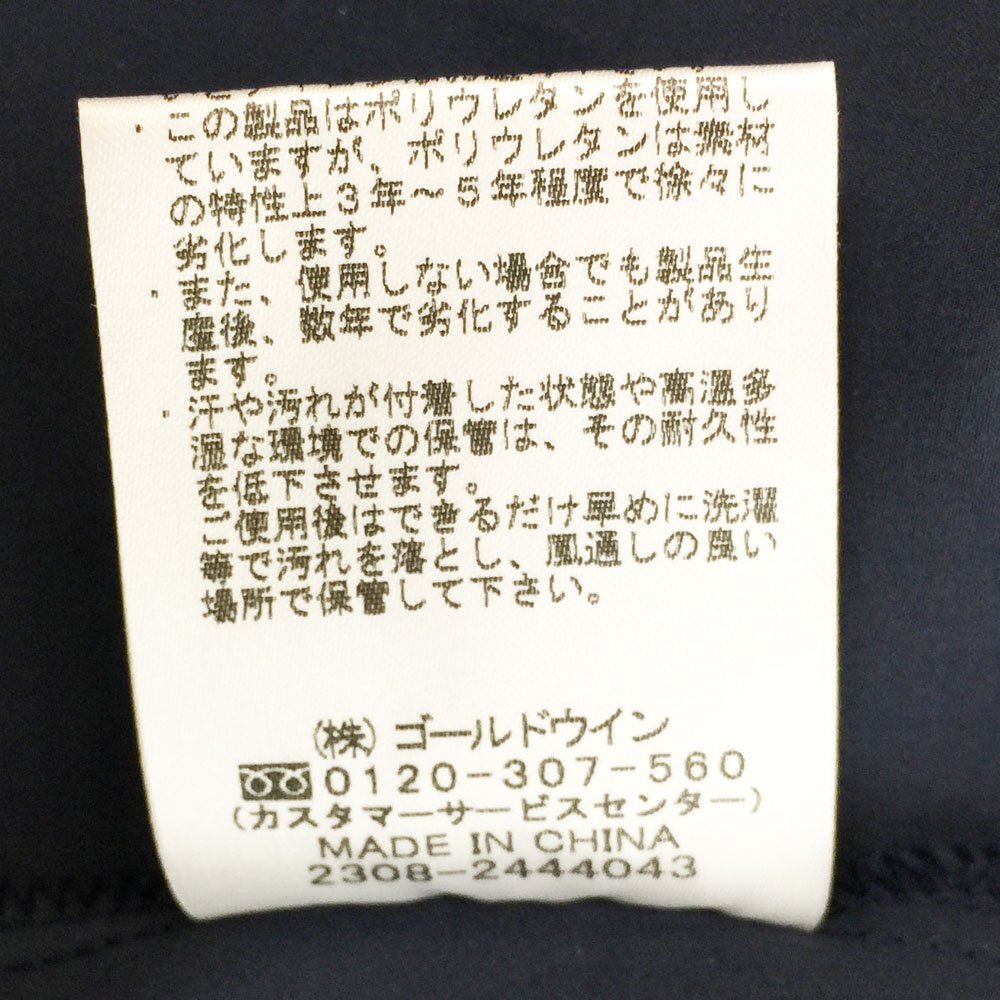 この製品はポリウレタンを使用し
ていますが、ポリウレタンは素材
の特性上3年～5年程度で徐々に
劣化します。
また、使用しない場合でも製品生
産後、数年で劣化することがあり
ます。
汗や汚れが付着した状態や高温多
湿な環境での保管は、その耐久性
を低下させます。
ご使用後はできるだけ早めに洗濯
等で汚れを落とし、風通しの良い
場所で保管して下さい。
(株)ゴールドウイン
0120-307-560
(カスタマーサービスセンター)
MADE IN CHINA
2308-2444043